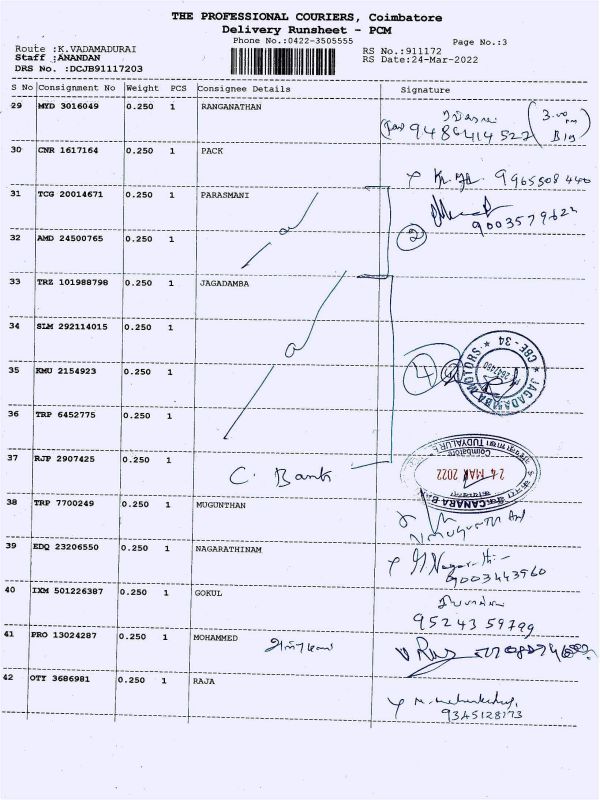 THE PROFESSIONAL COURIERS, Coimbatore
Delivery Runsheet - PCM
Phone No.:0422-3505555
Page No.:3
Route :K.VADAMADURAI
RS No.:911172
Staff :ANANDAN
RS Date:24-Mar-2022
DRS No. :DCJB91117203
S No Consignment No Weight PCS Consignee Details Signature
29 MYD 3016049 0.250 1 RANGANATHAN
9486414522
30 CNR 1617164 0.250 1 PACK
9965508440
31 TCG 20014671 0.250 1 PARASMANI
2
32 AMD 24500765 0.250 1
33 TRZ 101988798 0.250 1 JAGADAMBA
34 SLM 292114015 0.250 1
JAGADAMBA MOTORS * CBE - 34 *
4
35 KMU 2154923 0.250 1
36 TRP 6452775 0.250 1
37 RJP 2907425 0.250 1
C. Bank
CANARA BANK
24 MAR 2022
Coimbatore
38 TRP 7700249 0.250 1 MUGUNTHAN
39 EDQ 23206550 0.250 1 NAGARATHINAM
9003443560
40 IXM 501226387 0.250 1 GOKUL
9524359799
41 PRO 13024287 0.250 1 MOHAMMED
42 OTY 3686981 0.250 1 RAJA
9345128173